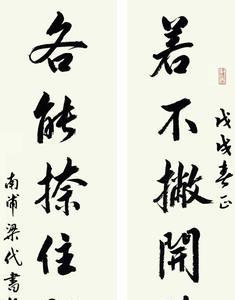 戊戌春正
若不撇開
各能捺住
南浦梁代書